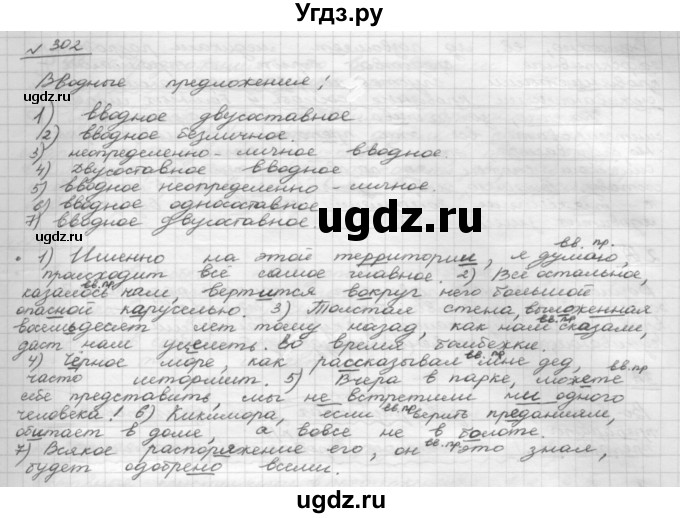 Угдз.ру
№ 302
Вводные предложения:
ugdz.ru
ugdz.ru
1) вводное двусоставное
2) вводное безличное.
3) неопределенно-личное вводное.
4) Двусоставное вводное
5) вводное неопределенно-личное.
6) вводное односоставное
7) вводное двусоставное
ugdz.ru
вв. пр.
• 1) Именно на этой территории, я думаю,
происходит всё самое главное. 2) Всё остальное,
вв. пр.
казалось нам, вертится вокруг него большой
опасной каруселью. 3) Толстая стена, выложенная
вв. пр.
восемьдесят лет тому назад, как нам сказали,
даст нам уцелеть во время бомбежки.
вв. пр.
4) Чёрное море, как рассказывал мне дед,
вв. пр.
часто штормит. 5) Вчера в парке, можете
себе представить, мы не встретили ни одного
вв. пр.
человека! 6) Кикимора, если верить преданиям,
обитает в доме, а вовсе не в болоте.
вв. пр.
7) Всякое распоряжение его, он это знал,
будет одобрено всеми.
ugdz.ru
ugdz.ru